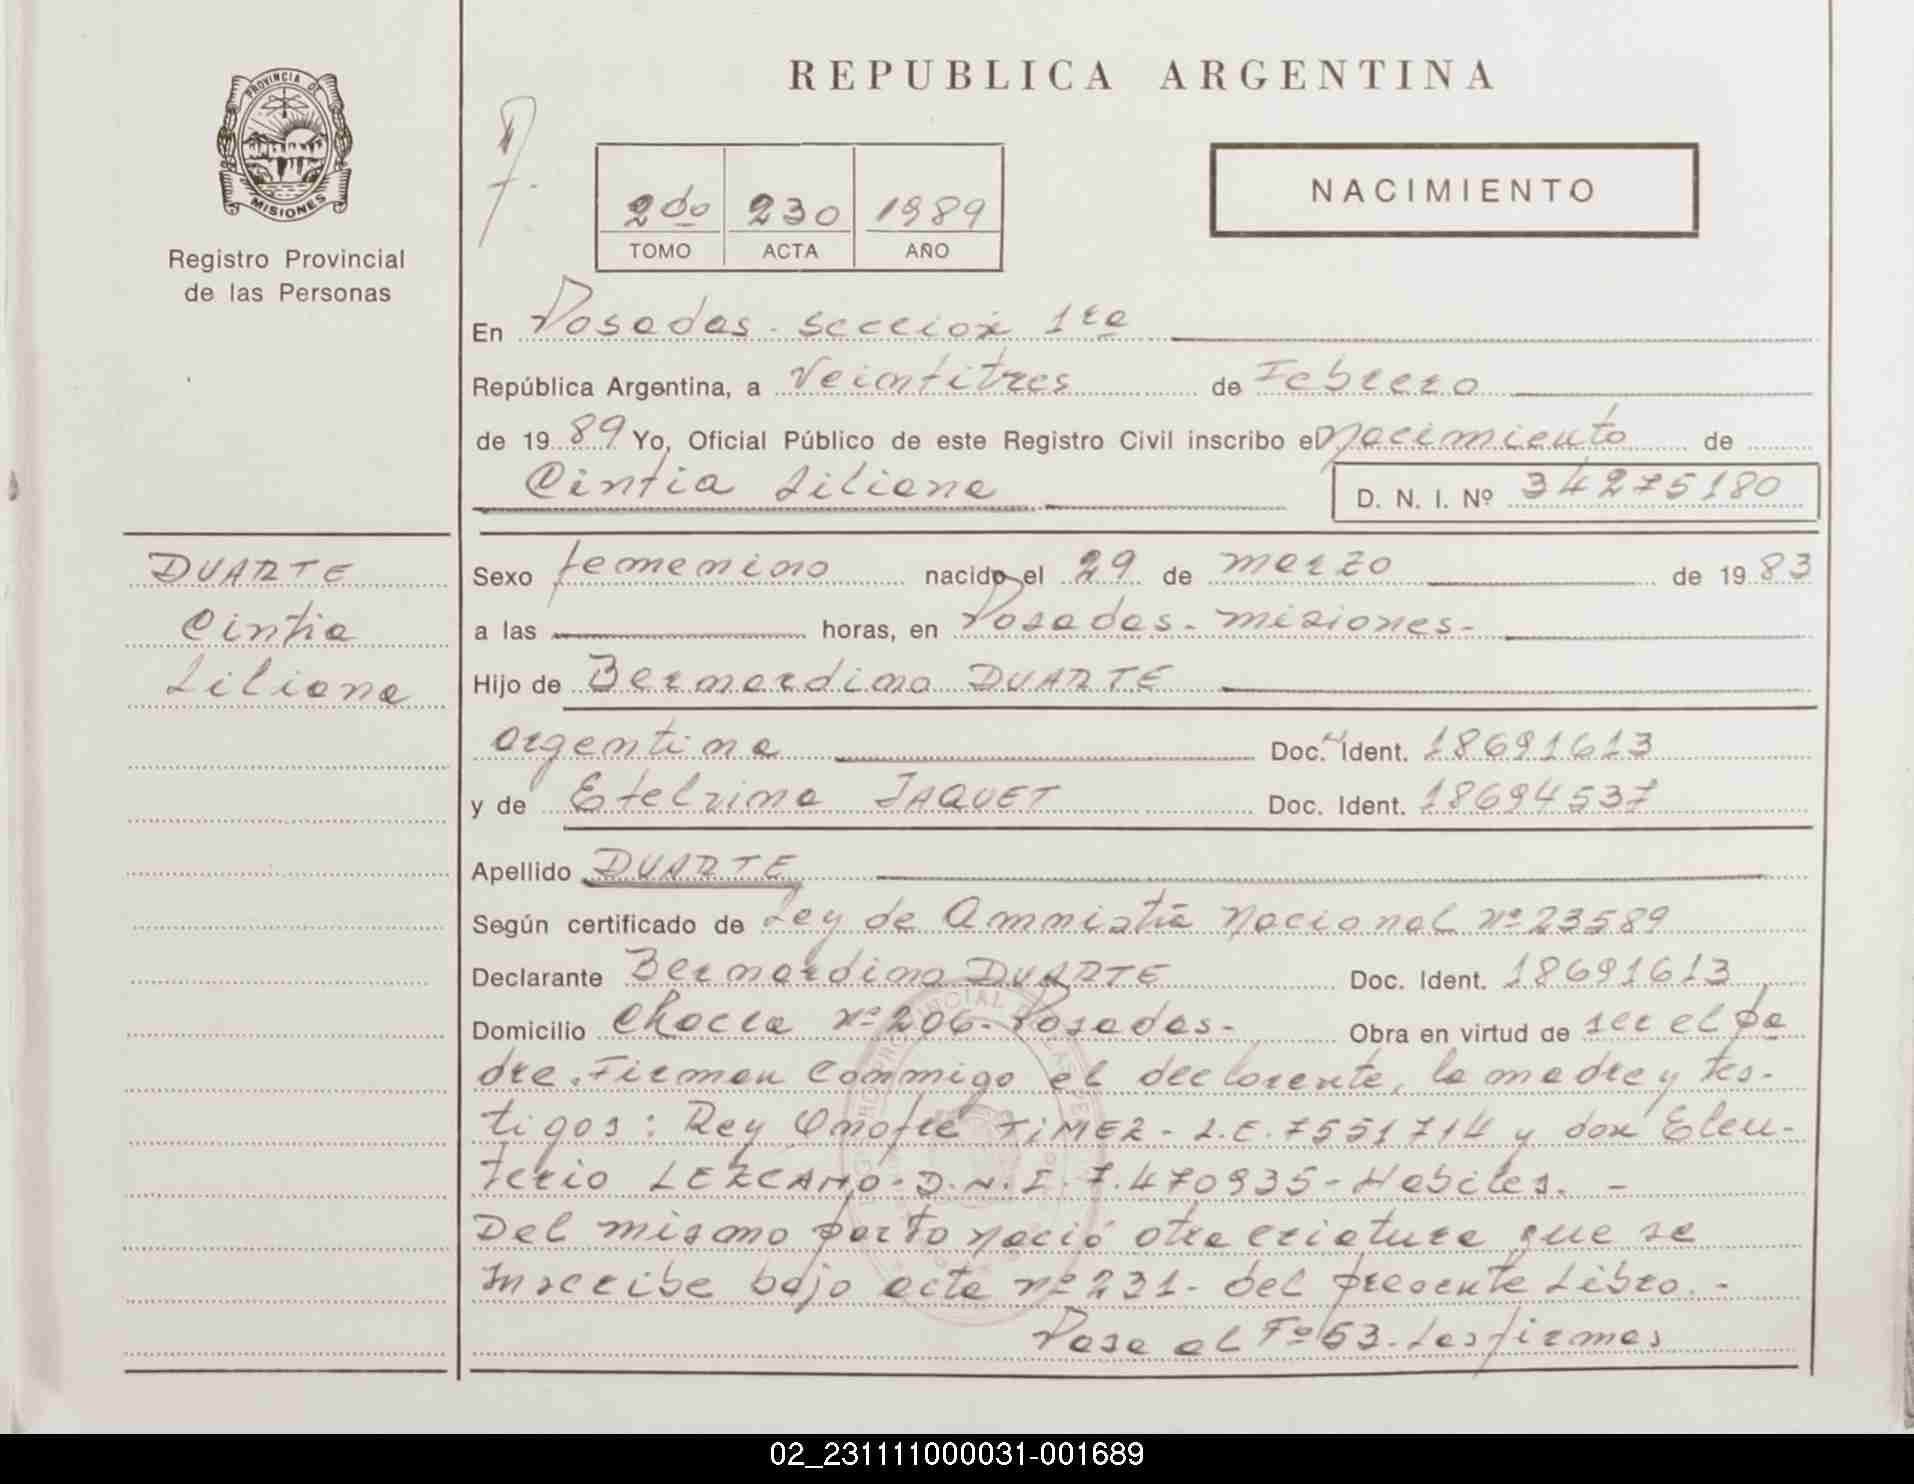 PROVINCIA DE
MISIONES
Registro Provincial
de las Personas
REPUBLICA ARGENTINA
NACIMIENTO
2do 230 1989
TOMO ACTA AÑO
En Posadas - Sección 1ra
República Argentina, a Veintitres de Febrero
de 1989 Yo, Oficial Público de este Registro Civil inscribo el Nacimiento de
Cintia Liliana
D. N. I. Nº 34275180
DUARTE
Cintia
Liliana
Sexo femenino nacido el 29 de marzo de 1983
a las horas, en Posadas - misiones -
Hijo de Bernardino DUARTE
argentina Doc. Ident. 18691613
y de Etelvina JAQUET Doc. Ident. 18694537
Apellido DUARTE
Según certificado de Ley de Amnistía Nacional Nº 23589
Declarante Bernardino DUARTE Doc. Ident. 18691613
Domicilio Chacra Nº 206 - Posadas - Obra en virtud de ser el pa
dre. Firman conmigo el declarante, la madre y tes-
tigos: Rey Onofre TIMEZ - L.E. 7551714 y don Eleu-
terio LEZCANO - D.N.I. 7.470935 - Habiles. -
Del mismo parto nació otra criatura que se
Inscribe bajo acta nº 231 - del presente Libro. -
Pase al Fº 53 - Las firmas
02_231111000031-001689